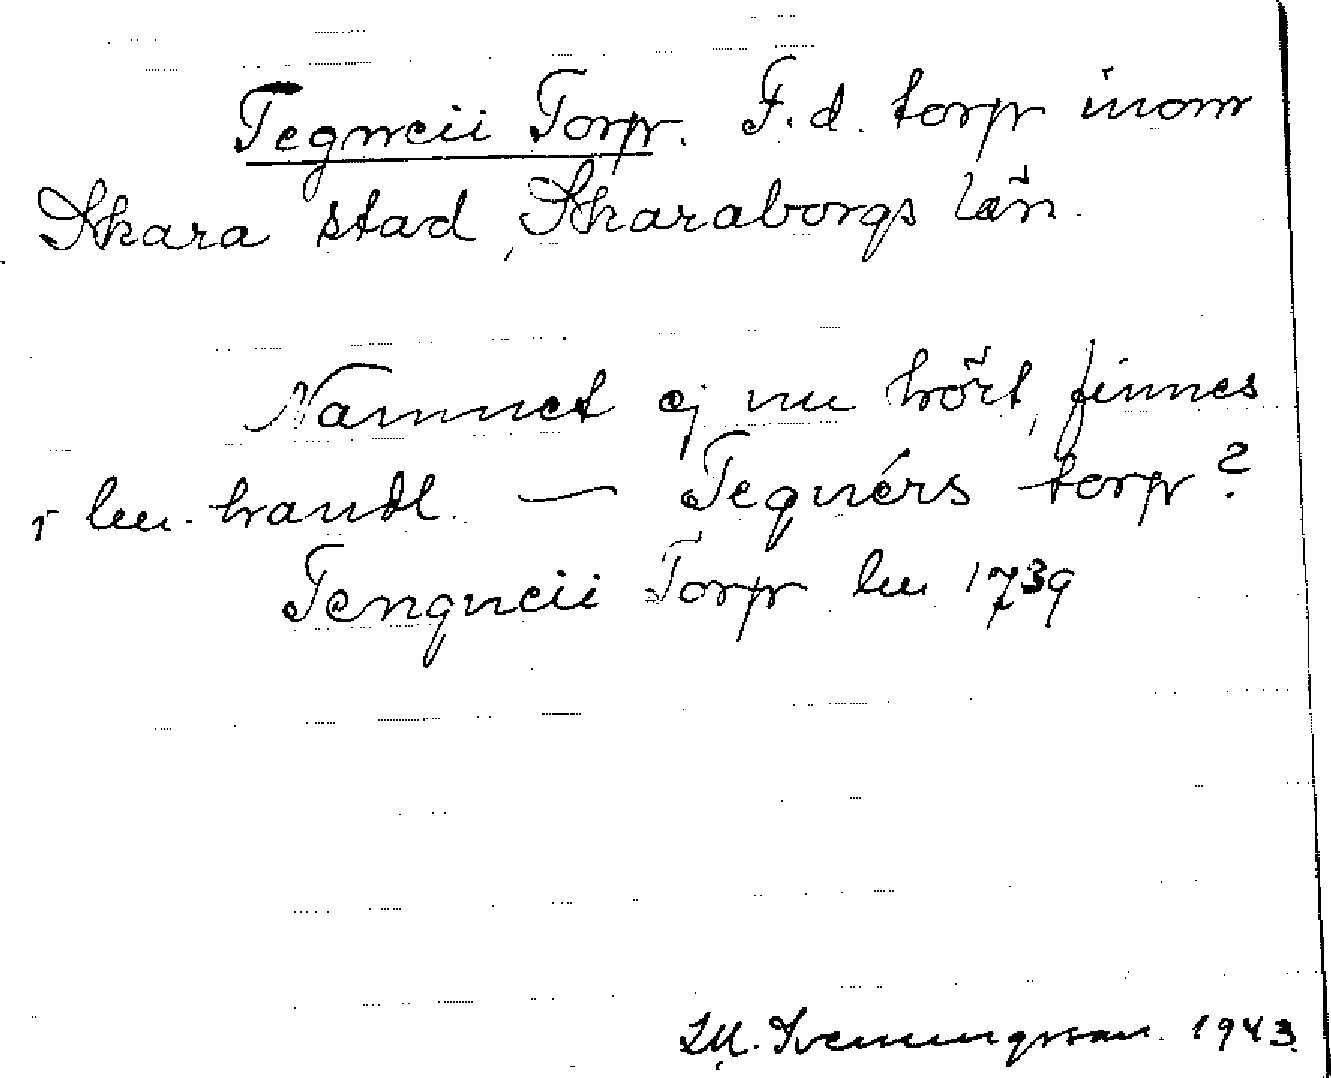 Tegneii Torp. F.d. torp inom
Skara stad, Skaraborgs län.
Namnet ej nu hört, finnes
i leu. handl. — Tegnérs torp?
Tengneii Torp leu 1739
M. Svenningsson 1943